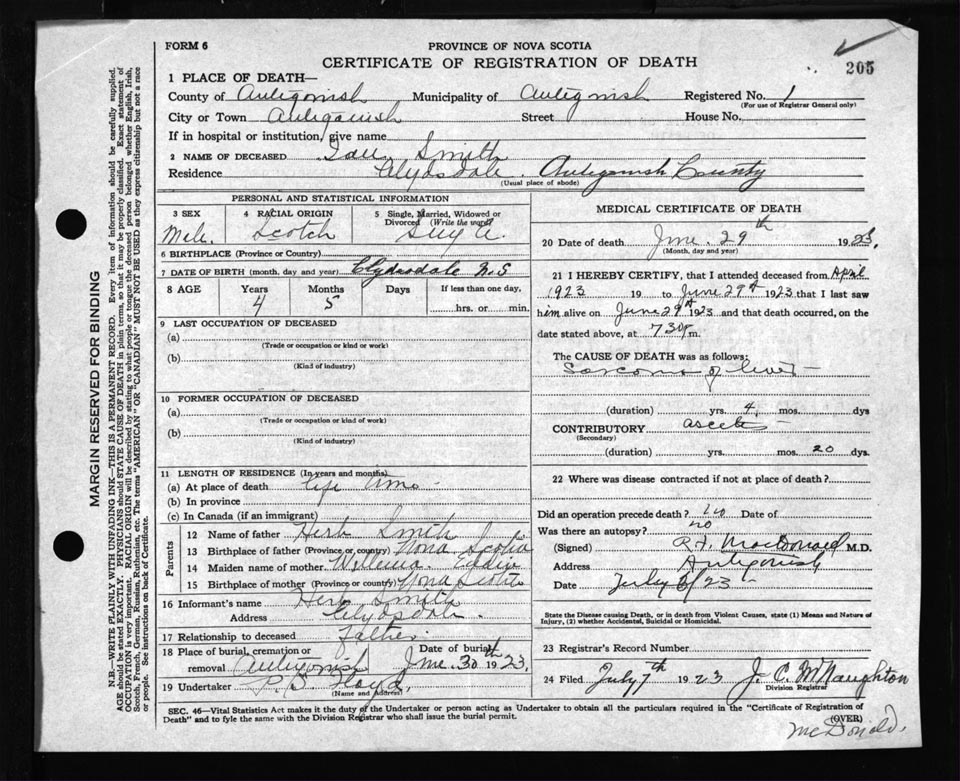 FORM 6
PROVINCE OF NOVA SCOTIA
CERTIFICATE OF REGISTRATION OF DEATH
205
1 PLACE OF DEATH—
County of Antigonish Municipality of Antigonish Registered No. 1
(For use of Registrar General only)
City or Town Antigonish Street House No.
If in hospital or institution, give name
2 NAME OF DECEASED Smith
Residence Clydsdale. Antigonish County
(Usual place of abode)
PERSONAL AND STATISTICAL INFORMATION
3 SEX 4 RACIAL ORIGIN 5 Single, Married, Widowed or Divorced (Write the word)
Male Scotch Single
6 BIRTHPLACE (Province or Country)
7 DATE OF BIRTH (month, day and year) Clydsdale N.S
8 AGE Years Months Days If less than one day,
4 5 hrs. or min.
9 LAST OCCUPATION OF DECEASED
(a)
(Trade or occupation or kind or work)
(b)
(Kind of industry)
10 FORMER OCCUPATION OF DECEASED
(a)
(Trade or occupation or kind or work)
(b)
(Kind of industry)
11 LENGTH OF RESIDENCE (In years and months)
(a) At place of death life time
(b) In province
(c) In Canada (if an immigrant)
Parents
12 Name of father Herb Smith
13 Birthplace of father (Province or country) Nova Scotia
14 Maiden name of mother
15 Birthplace of mother (Province or country) Nova Scotia
16 Informant's name Herb Smith
Address Clydsdale.
17 Relationship to deceased father
18 Place of burial, cremation or removal Antigonish Date of burial June 30th 1923
19 Undertaker P.S. Floyd.
(Name and address)
MEDICAL CERTIFICATE OF DEATH
20 Date of death June 29th 1923.
(Month, day and year)
21 I HEREBY CERTIFY, that I attended deceased from April
1923 19 to June 29th 1923 that I last saw
him alive on June 29th 1923 and that death occurred, on the
date stated above, at 7.30 p m.
The CAUSE OF DEATH was as follows:
Sarcoma of liver
(duration) yrs. 4 mos. days
CONTRIBUTORY ascites
(Secondary)
(duration) yrs. mos. 20 dys.
22 Where was disease contracted if not at place of death?
Did an operation precede death? no Date of
Was there an autopsy? no
(Signed) R.F. MacDonald M.D.
Address Antigonish
Date July 6/23
State the Disease causing Death, or in death from Violent Causes, state (1) Means and Nature of
Injury, (2) whether Accidental, Suicidal or Homicidal.
23 Registrar's Record Number
24 Filed July 7th 1923 J. C. McNaughton
Division Registrar
SEC. 46—Vital Statistics Act makes it the duty of the Undertaker or person acting as Undertaker to obtain all the particulars required in the "Certificate of Registration of
Death" and to fyle the same with the Division Registrar who shall issue the burial permit.
(OVER)
McDonald.
MARGIN RESERVED FOR BINDING
N.B.—WRITE PLAINLY WITH UNFADING INK—THIS IS A PERMANENT RECORD. Every item of information should be carefully supplied.
AGE should be stated EXACTLY. PHYSICIANS should STATE CAUSE OF DEATH in plain terms, so that it may be properly classified. Exact statement of
OCCUPATION is very important. RACIAL ORIGIN will be described by stating to what people or tongue the deceased person belonged whether English, Irish,
Scotch, French, German, Russian, Ruthenian, etc. The terms "AMERICAN" OR "CANADIAN" MUST NOT BE USED as they express citizenship but not a race
or people. See instructions on back of Certificate.